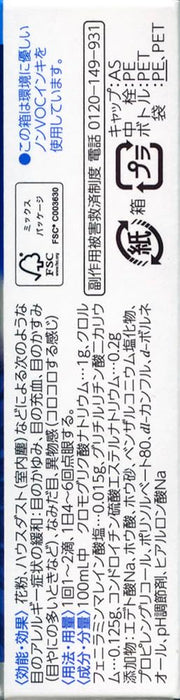 ●この箱は環境に優しい
ノンVOCインキを
使用しています。
ミックス
パッケージ
FSC
www.fsc.org
FSC® C003630
副作用被害救済制度 電話 0120-149-931
キャップ:AS
中　栓:PE
ボトル:PET
袋　:PP,PET
プラ
紙
箱
〈効能・効果〉花粉、ハウスダスト(室内塵)などによる次のような
目のアレルギー症状の緩和:目のかゆみ、目の充血、目のかすみ
(目やにの多いときなど)、なみだ目、異物感(コロコロする感じ)
〈用法・用量〉1回1～2滴、1日4～6回点眼する。
〈成分・分量〉100ml中 クロモグリク酸ナトリウム…1g、クロル
フェニラミンマレイン酸塩…0.015g、グリチルリチン酸二カリウ
ム…0.125g、コンドロイチン硫酸エステルナトリウム…0.2g
添加物:エデト酸Na、ホウ酸、ホウ砂、ベンザルコニウム塩化物、
プロピレングリコール、ポリソルベート80、dl-カンフル、d-ボルネ
オール、pH調節剤、ヒアルロン酸Na